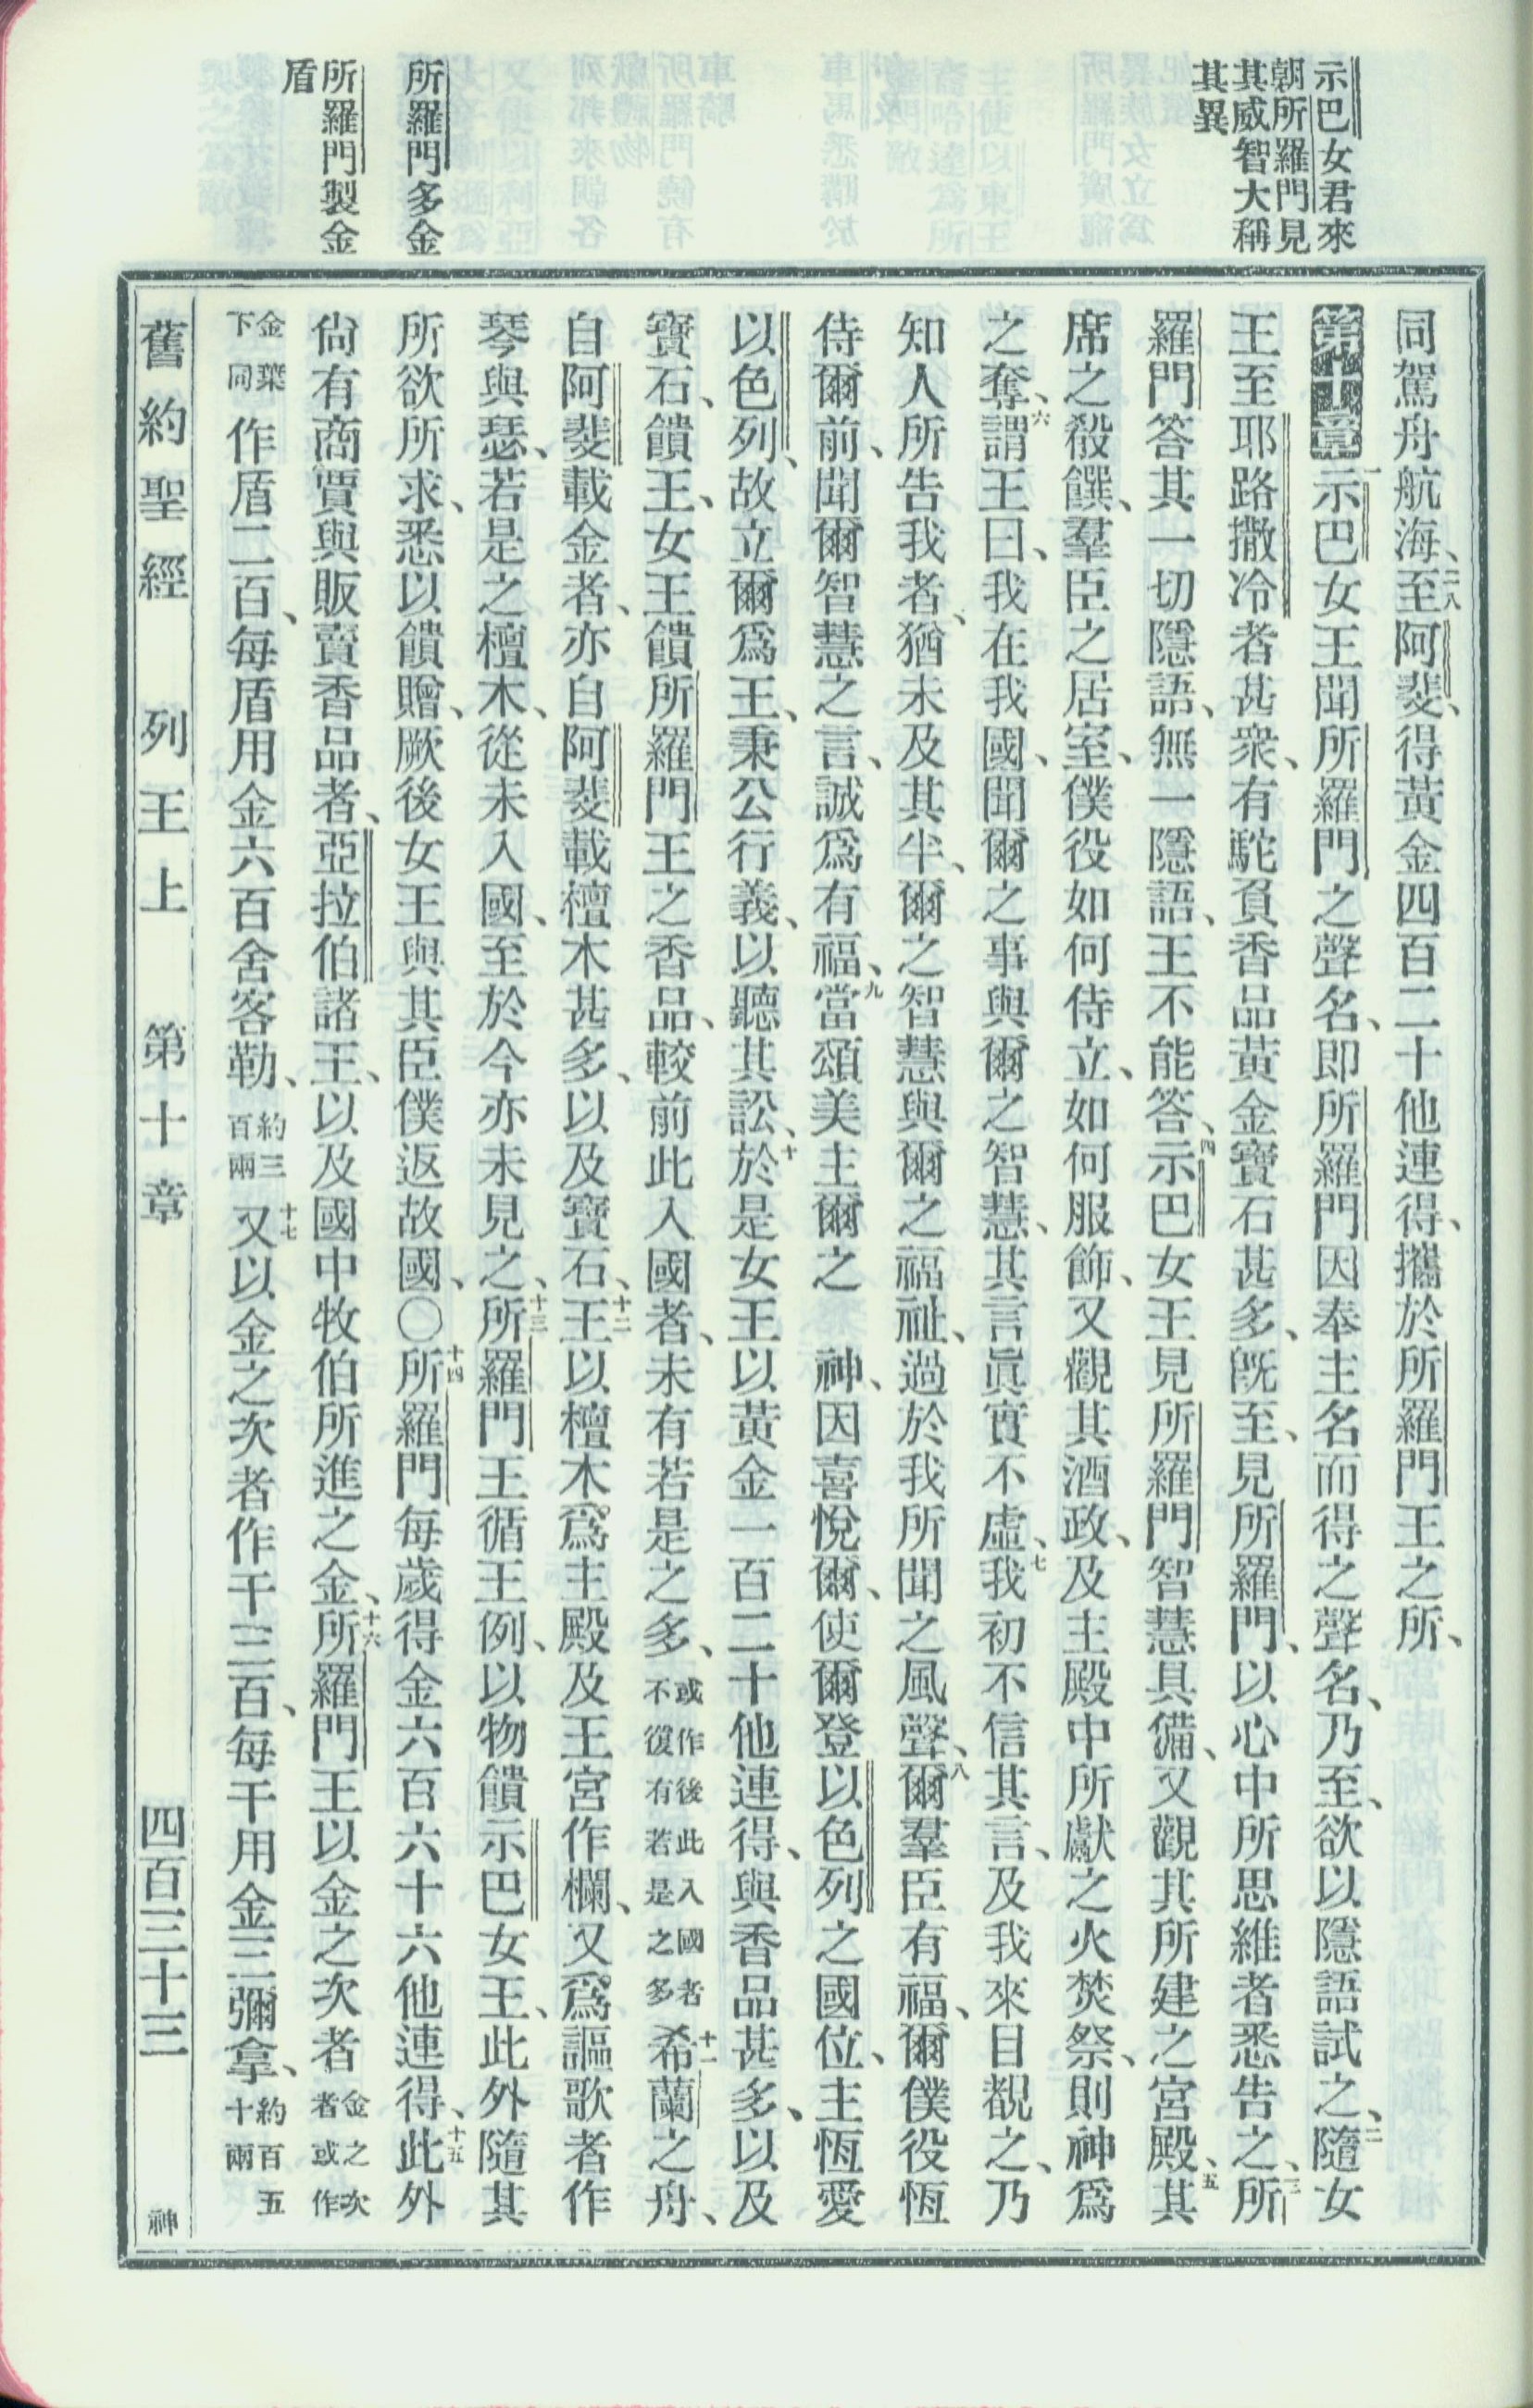 示巴女君來
朝所羅門見
其威智大稱
其異
所羅門多金
所羅門製金
盾
同駕舟航海、二八至阿斐、得黃金四百二十他連得、攜於所羅門王之所、
第十章 一示巴女王聞所羅門之聲名、即所羅門因奉主名而得之聲名、乃至、欲以隱語試之、二隨女
王至耶路撒冷者甚衆、有駝負香品黃金寶石甚多、旣至、見所羅門、以心中所思維者悉告之、三所
羅門答其一切隱語、無一隱語、王不能答、四示巴女王見所羅門智慧具備、又觀其所建之宮殿、五其
席之殽饌、羣臣之居室、僕役如何侍立、如何服飾、又觀其酒政、及主殿中所獻之火焚祭、則神爲
之奪、六謂王曰、我在我國、聞爾之事與爾之智慧、其言眞實不虛、七我初不信其言、及我來目覩之、乃
知人所告我者、猶未及其半、爾之智慧與爾之福祉、過於我所聞之風聲、八爾羣臣有福、爾僕役恆
侍爾前、聞爾智慧之言、誠爲有福、九當頌美主爾之 神、因喜悅爾、使爾登以色列之國位、主恆愛
以色列、故立爾爲王、秉公行義、以聽其訟、十於是女王以黃金一百二十他連得、與香品甚多、以及
寶石、饋王、女王饋所羅門王之香品、較前此入國者、未有若是之多、或作後此入國者不復有若是之多 十一希蘭之舟、
自阿斐載金者、亦自阿斐載檀木甚多、以及寶石、十二王以檀木爲主殿及王宮作欄、又爲謳歌者作
琴與瑟、若是之檀木、從未入國、至於今亦未見之、十三所羅門王循王例、以物饋示巴女王、此外隨其
所欲所求、悉以饋贈、厥後女王與其臣僕返故國、○十四所羅門每歲得金六百六十六他連得、十五此外
尙有商賈與販賣香品者、亞拉伯諸王、以及國中牧伯所進之金、十六所羅門王以金之次者金之次者或作
金葉下同 作盾二百、每盾用金六百舍客勒、約三百兩 十七又以金之次者作干三百、每干用金三彌拿、約百五十兩
舊約聖經 列王上 第十章 四百三十三 神